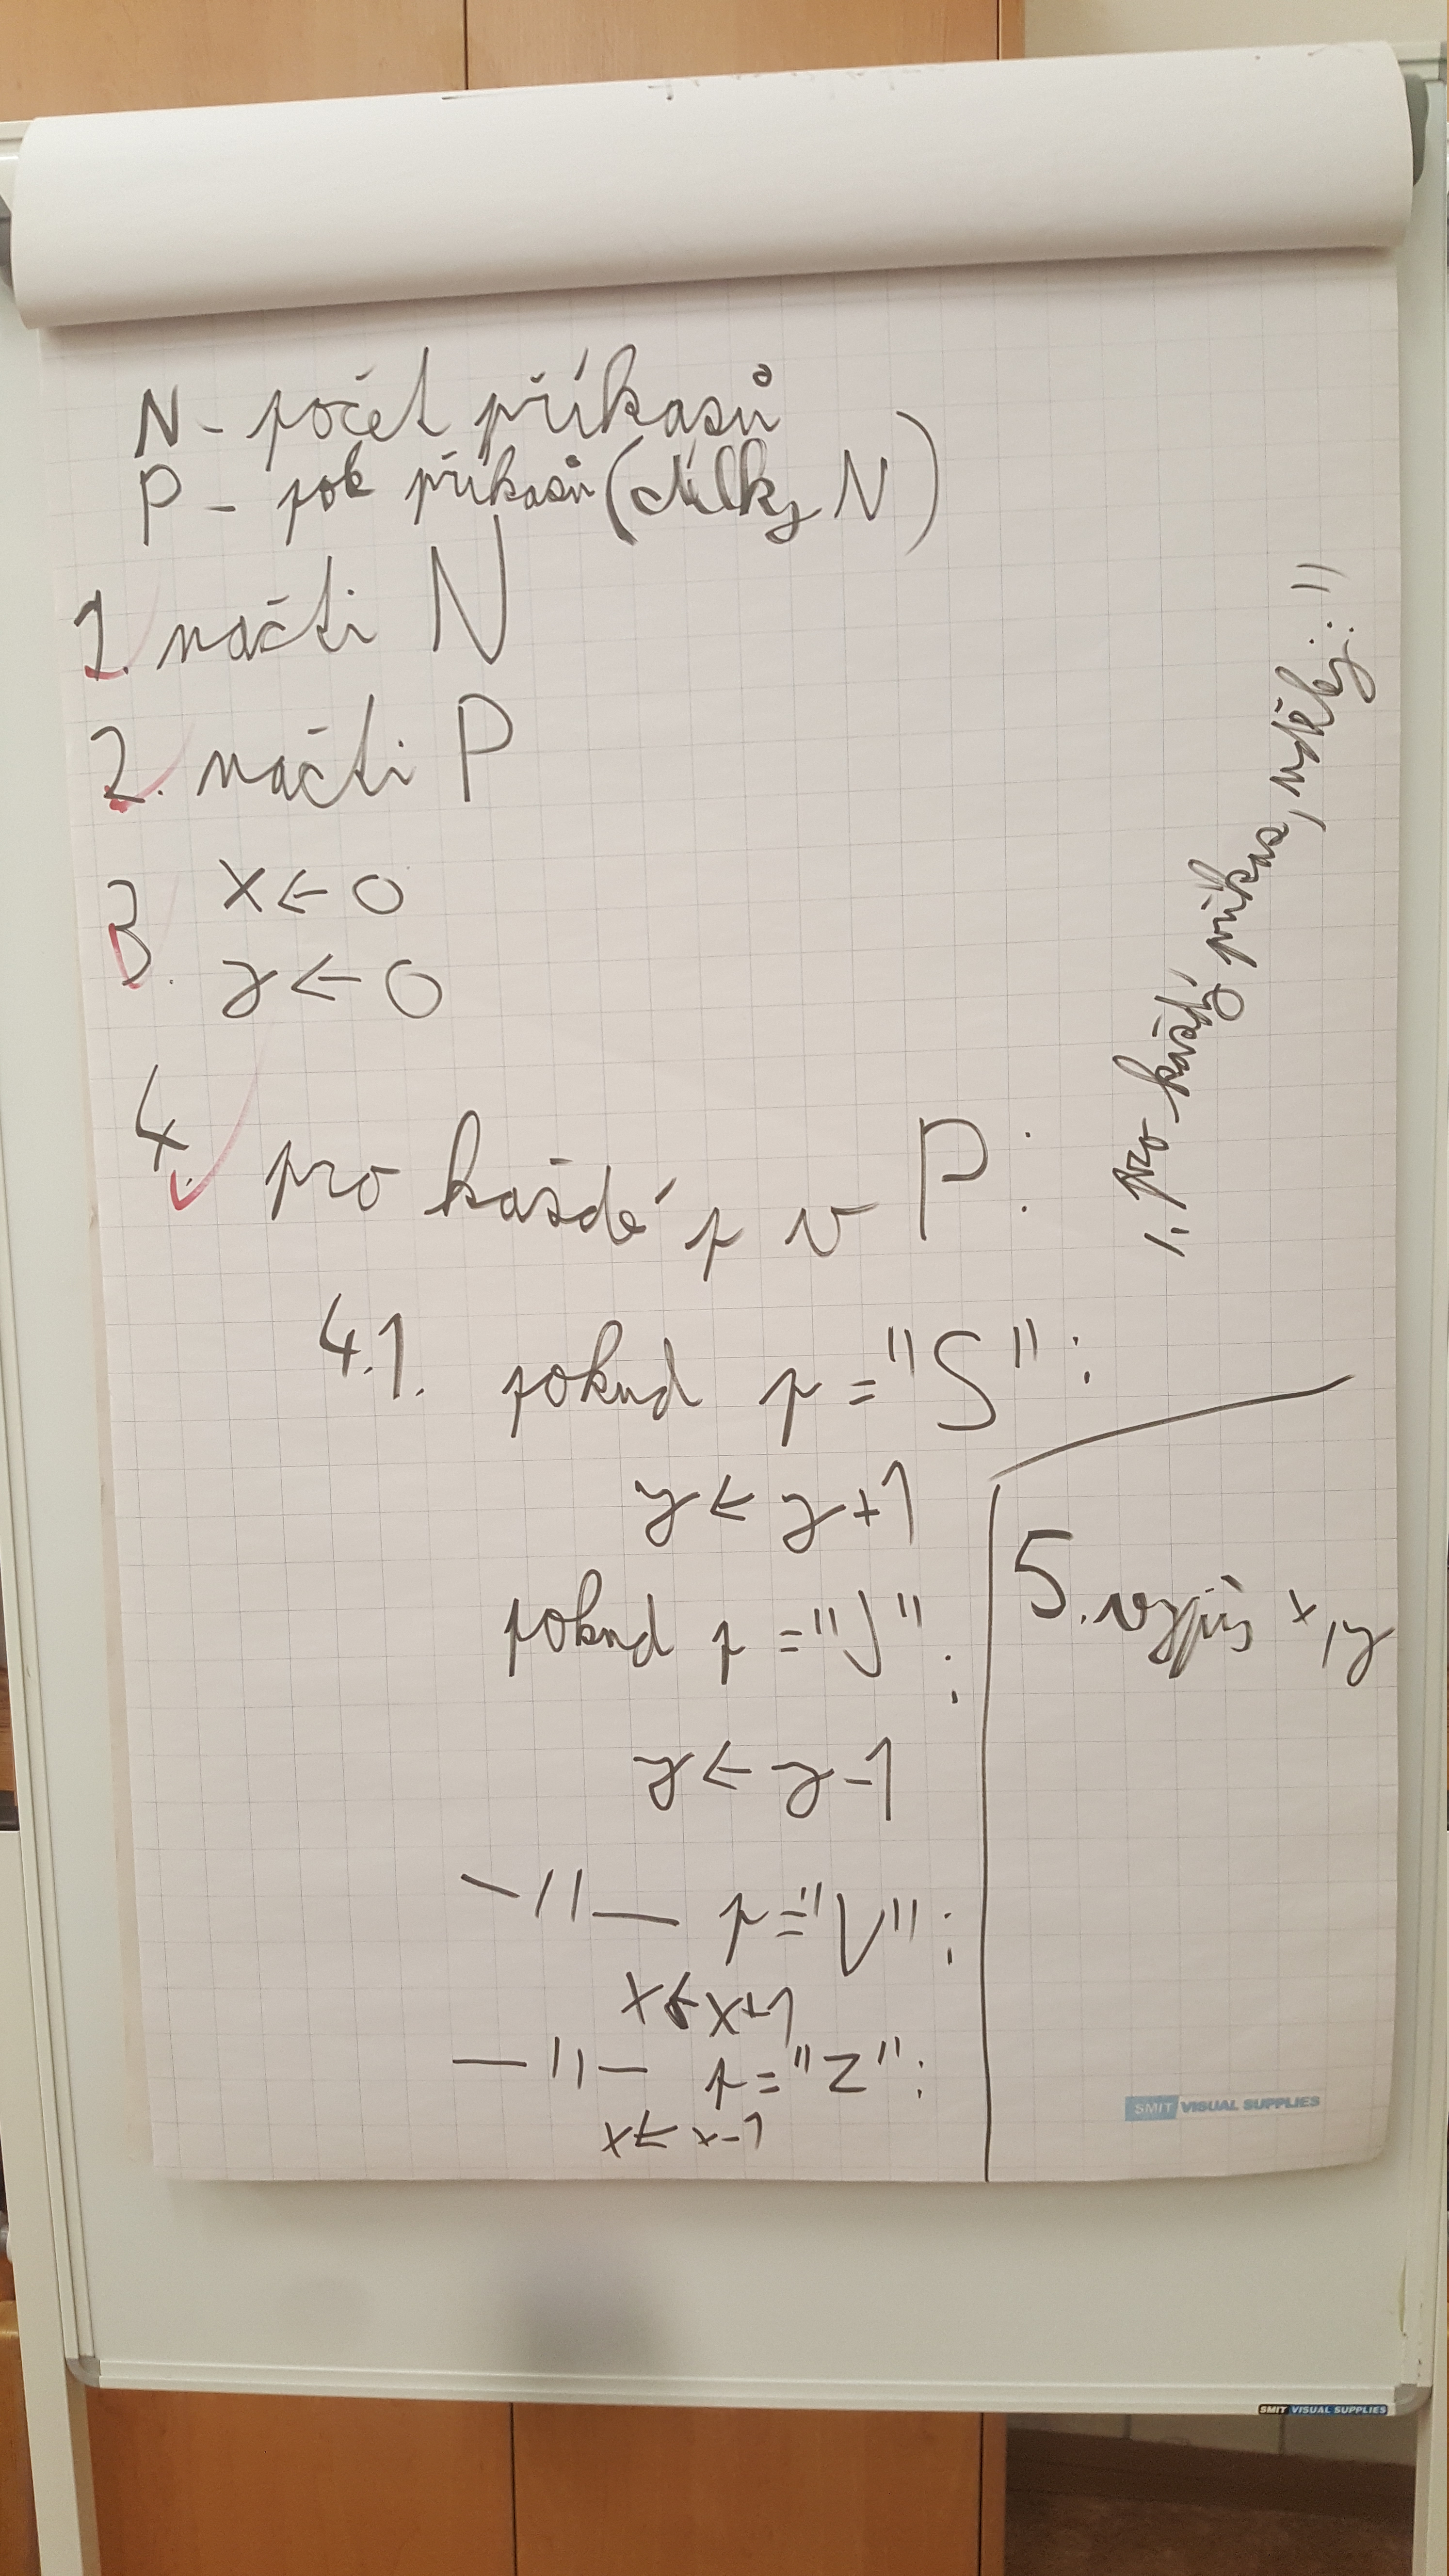 N - počet příkazů
P - pole příkazů (délky N)
1. načti N
2. načti P
3. x ← 0
y ← 0
4. pro každé p v P:
"pro každý příkaz, udělej: "
4.1. pokud p = "S":
y ← y+1
pokud p = "J":
y ← y-1
-"- p = "V":
x ← x+1
-"- p = "Z":
x ← x-1
5. vypiš x, y
SMIT VISUAL SUPPLIES
SMIT VISUAL SUPPLIES